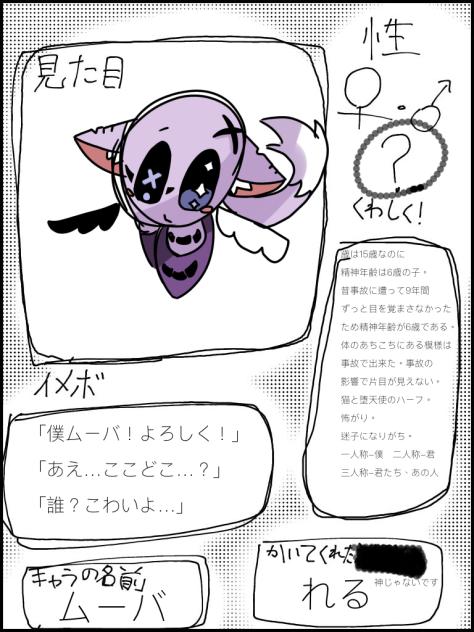 見た目
性
♀・♂
?
くわしく!
歳は15歳なのに
精神年齢は6歳の子。
昔事故に遭って9年間
ずっと目を覚まさなかった
ため精神年齢が6歳である。
体のあちこちにある模様は
事故で出来た。事故の
影響で片目が見えない。
猫と堕天使のハーフ。
怖がり。
迷子になりがち。
一人称–僕　二人称–君
三人称–君たち、あの人
イメボ
「僕ムーバ！よろしく！」
「あえ…ここどこ…？」
「誰？こわいよ…」
キャラの名前
ムーバ
かいてくれた
神じゃないです
れる